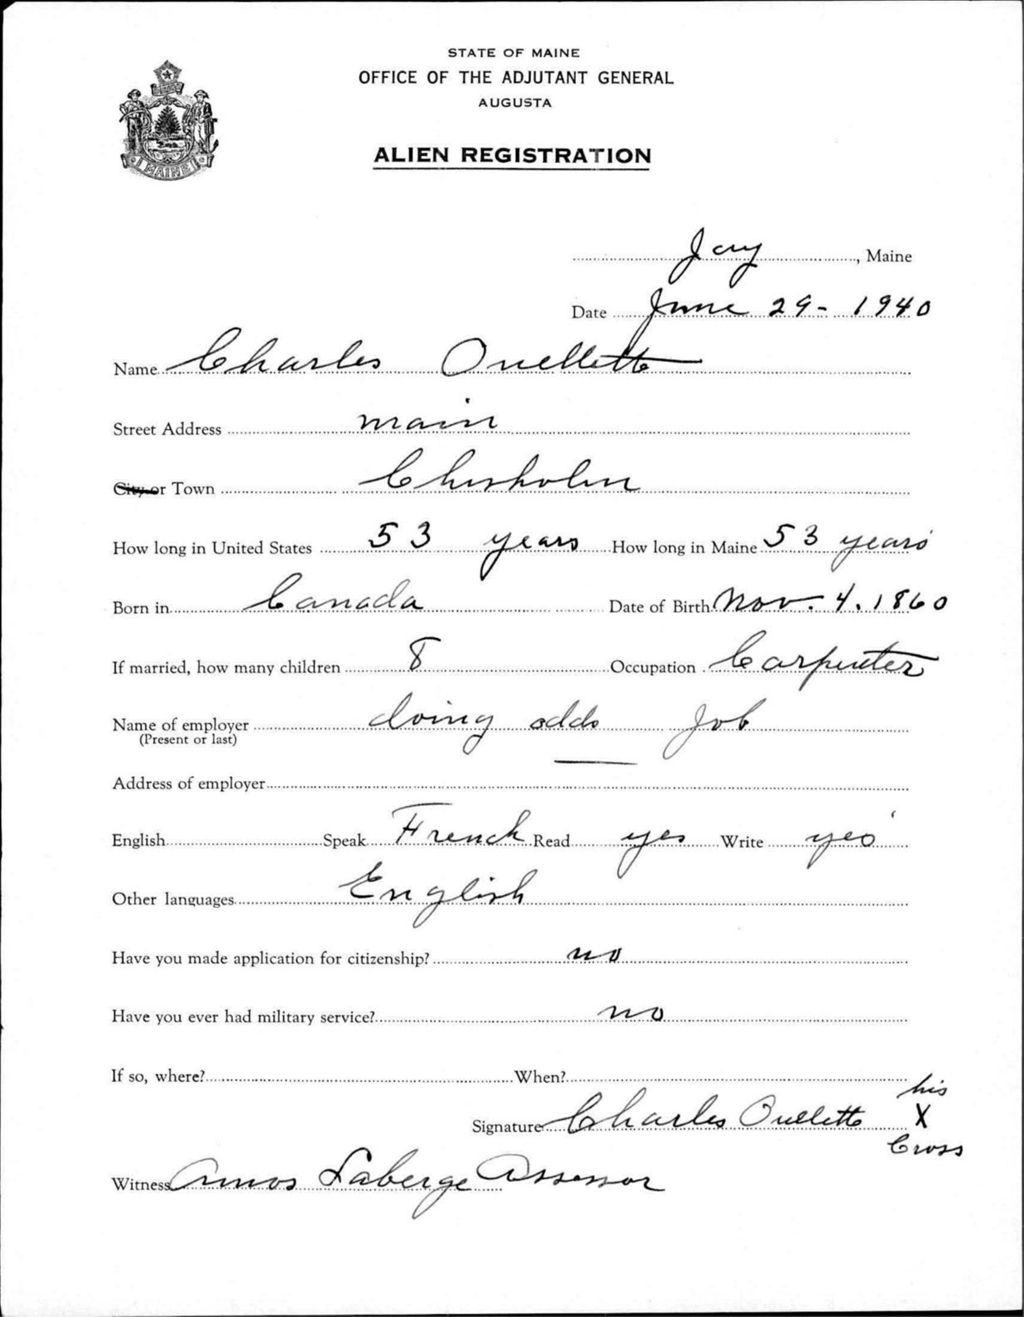 STATE OF MAINE
OFFICE OF THE ADJUTANT GENERAL
AUGUSTA
ALIEN REGISTRATION
Jay, Maine
Date June 29- 1940
Name Charles Ouellette
Street Address main
City or Town Chisholm
How long in United States 53 years How long in Maine 53 years
Born in Canada Date of Birth Nov. 4. 1860
If married, how many children 8 Occupation Carpenter
Name of employer doing odds Job
(Present or last)
Address of employer
English Speak French Read yes Write yes
Other languages English
Have you made application for citizenship? no
Have you ever had military service? no
If so, where? When?
his
Signature Charles Ouellette X
Cross
Witness Amos Laberge Assessor
MAINE